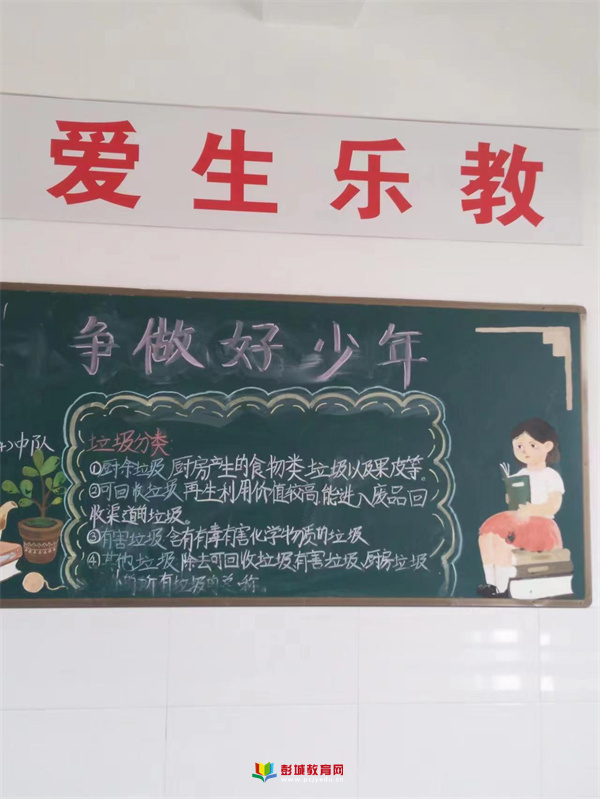 爱生乐教
争做好少年
中队
垃圾分类
①厨余垃圾 厨房产生的食物类垃圾以及果皮等
②可回收垃圾 再生利用价值较高,能进入废品回
收渠道的垃圾。
③有害垃圾 含有有毒有害化学物质的垃圾
④其他垃圾 除去可回收垃圾,有害垃圾、厨房垃圾
所有垃圾的总称
彭城教育网